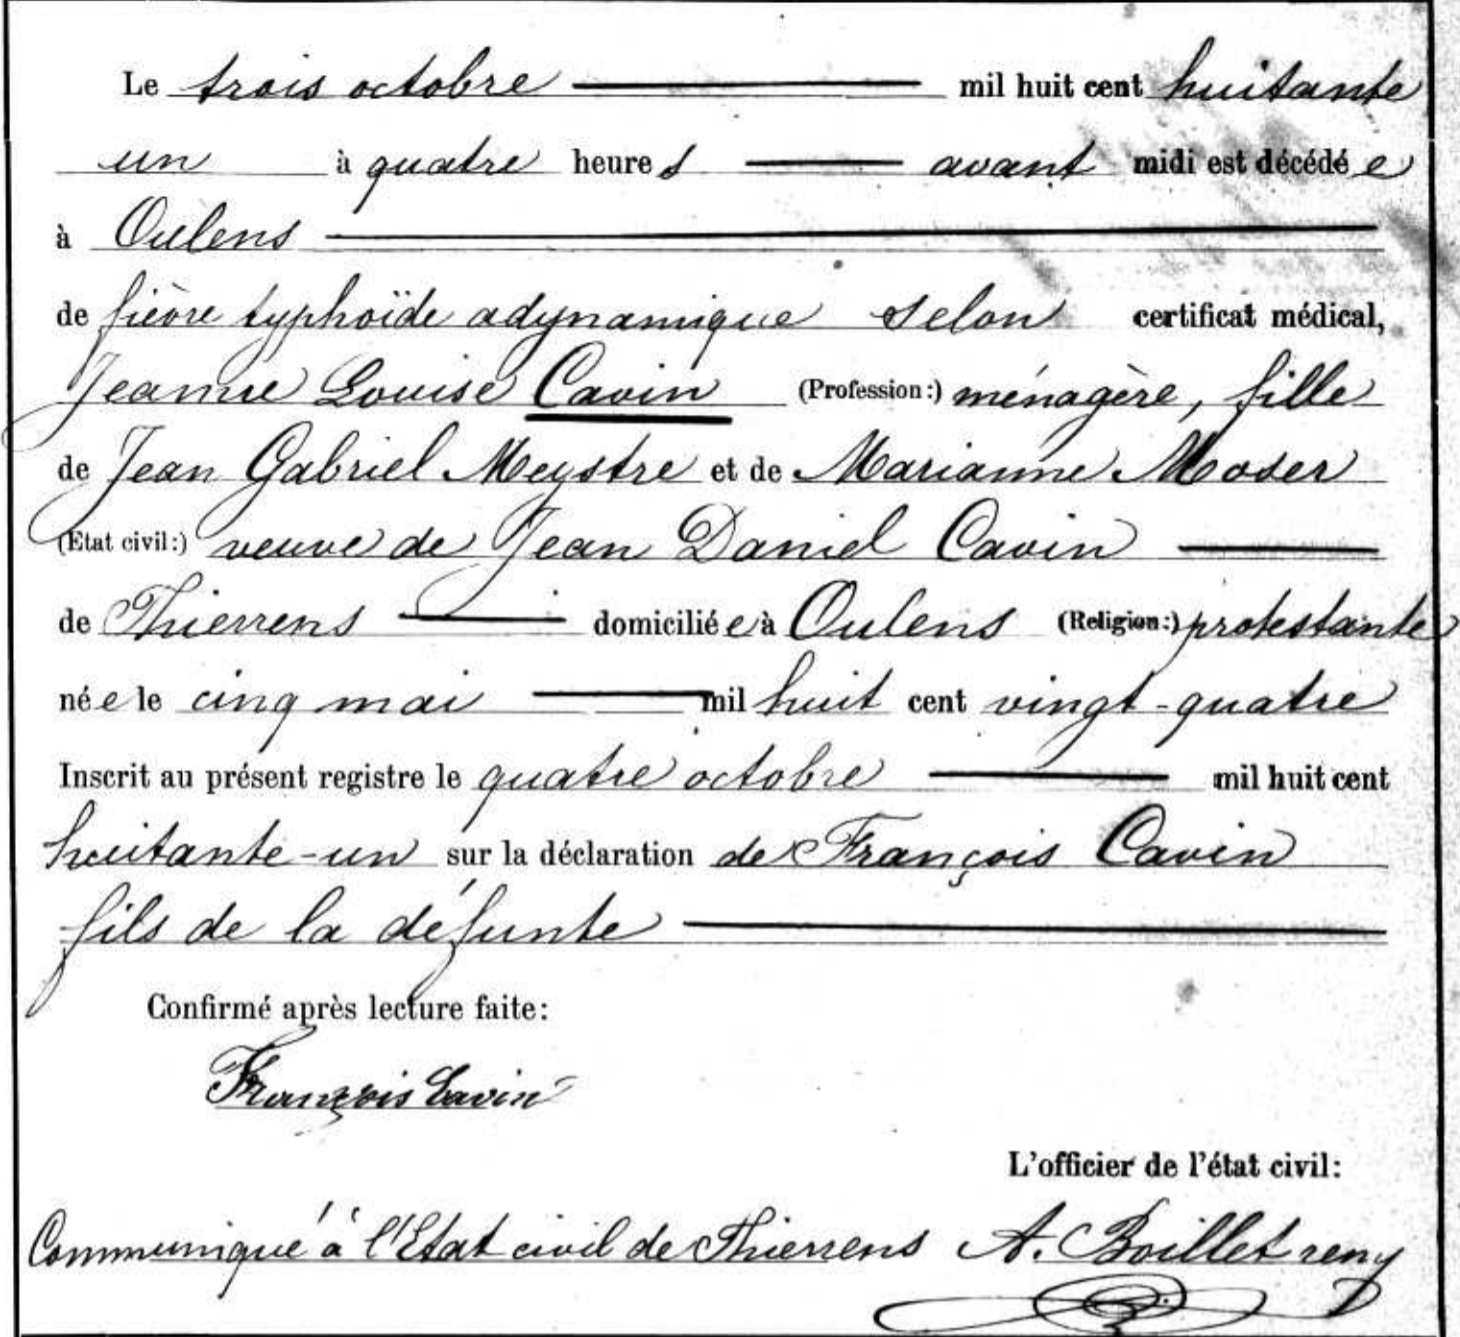 Le trois octobre mil huit cent huitante
un à quatre heures avant midi est décédée
à Oulens
de fièvre typhoïde adynamique selon certificat médical,
Jeanne Louise Cavin (Profession:) ménagère, fille
de Jean Gabriel Meystre et de Marianne Moser
(Etat civil:) veuve de Jean Daniel Cavin
de Thierrens domiciliée à Oulens (Religion:) protestante
née le cinq mai mil huit cent vingt-quatre
Inscrit au présent registre le quatre octobre mil huit cent
huitante-un sur la déclaration de François Cavin
fils de la défunte
Confirmé après lecture faite:
François Cavin
L'officier de l'état civil:
Communiqué à l'Etat civil de Thierrens A. Boillet